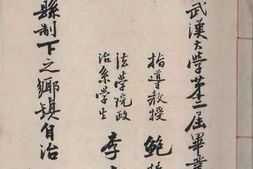 武漢大學第二屆畢業
指導教授 鮑
法學院政
治系學生 李
縣制下之鄉鎮自治